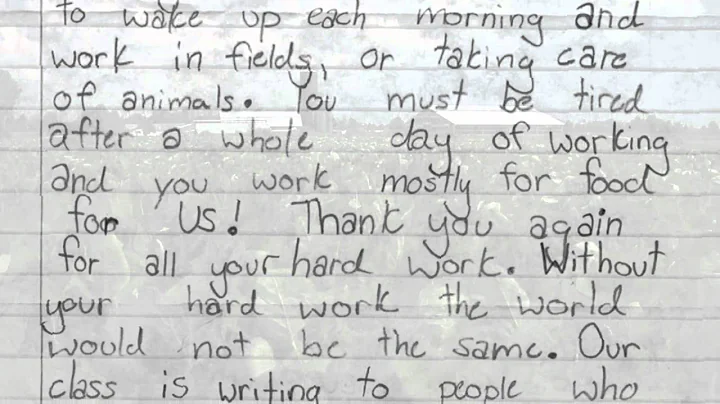 to wake up each morning and
work in fields, or taking care
of animals. You must be tired
after a whole day of working
and you work mostly for food
for us! Thank you again
for all your hard work. Without
your hard work the world
would not be the same. Our
class is writing to people who